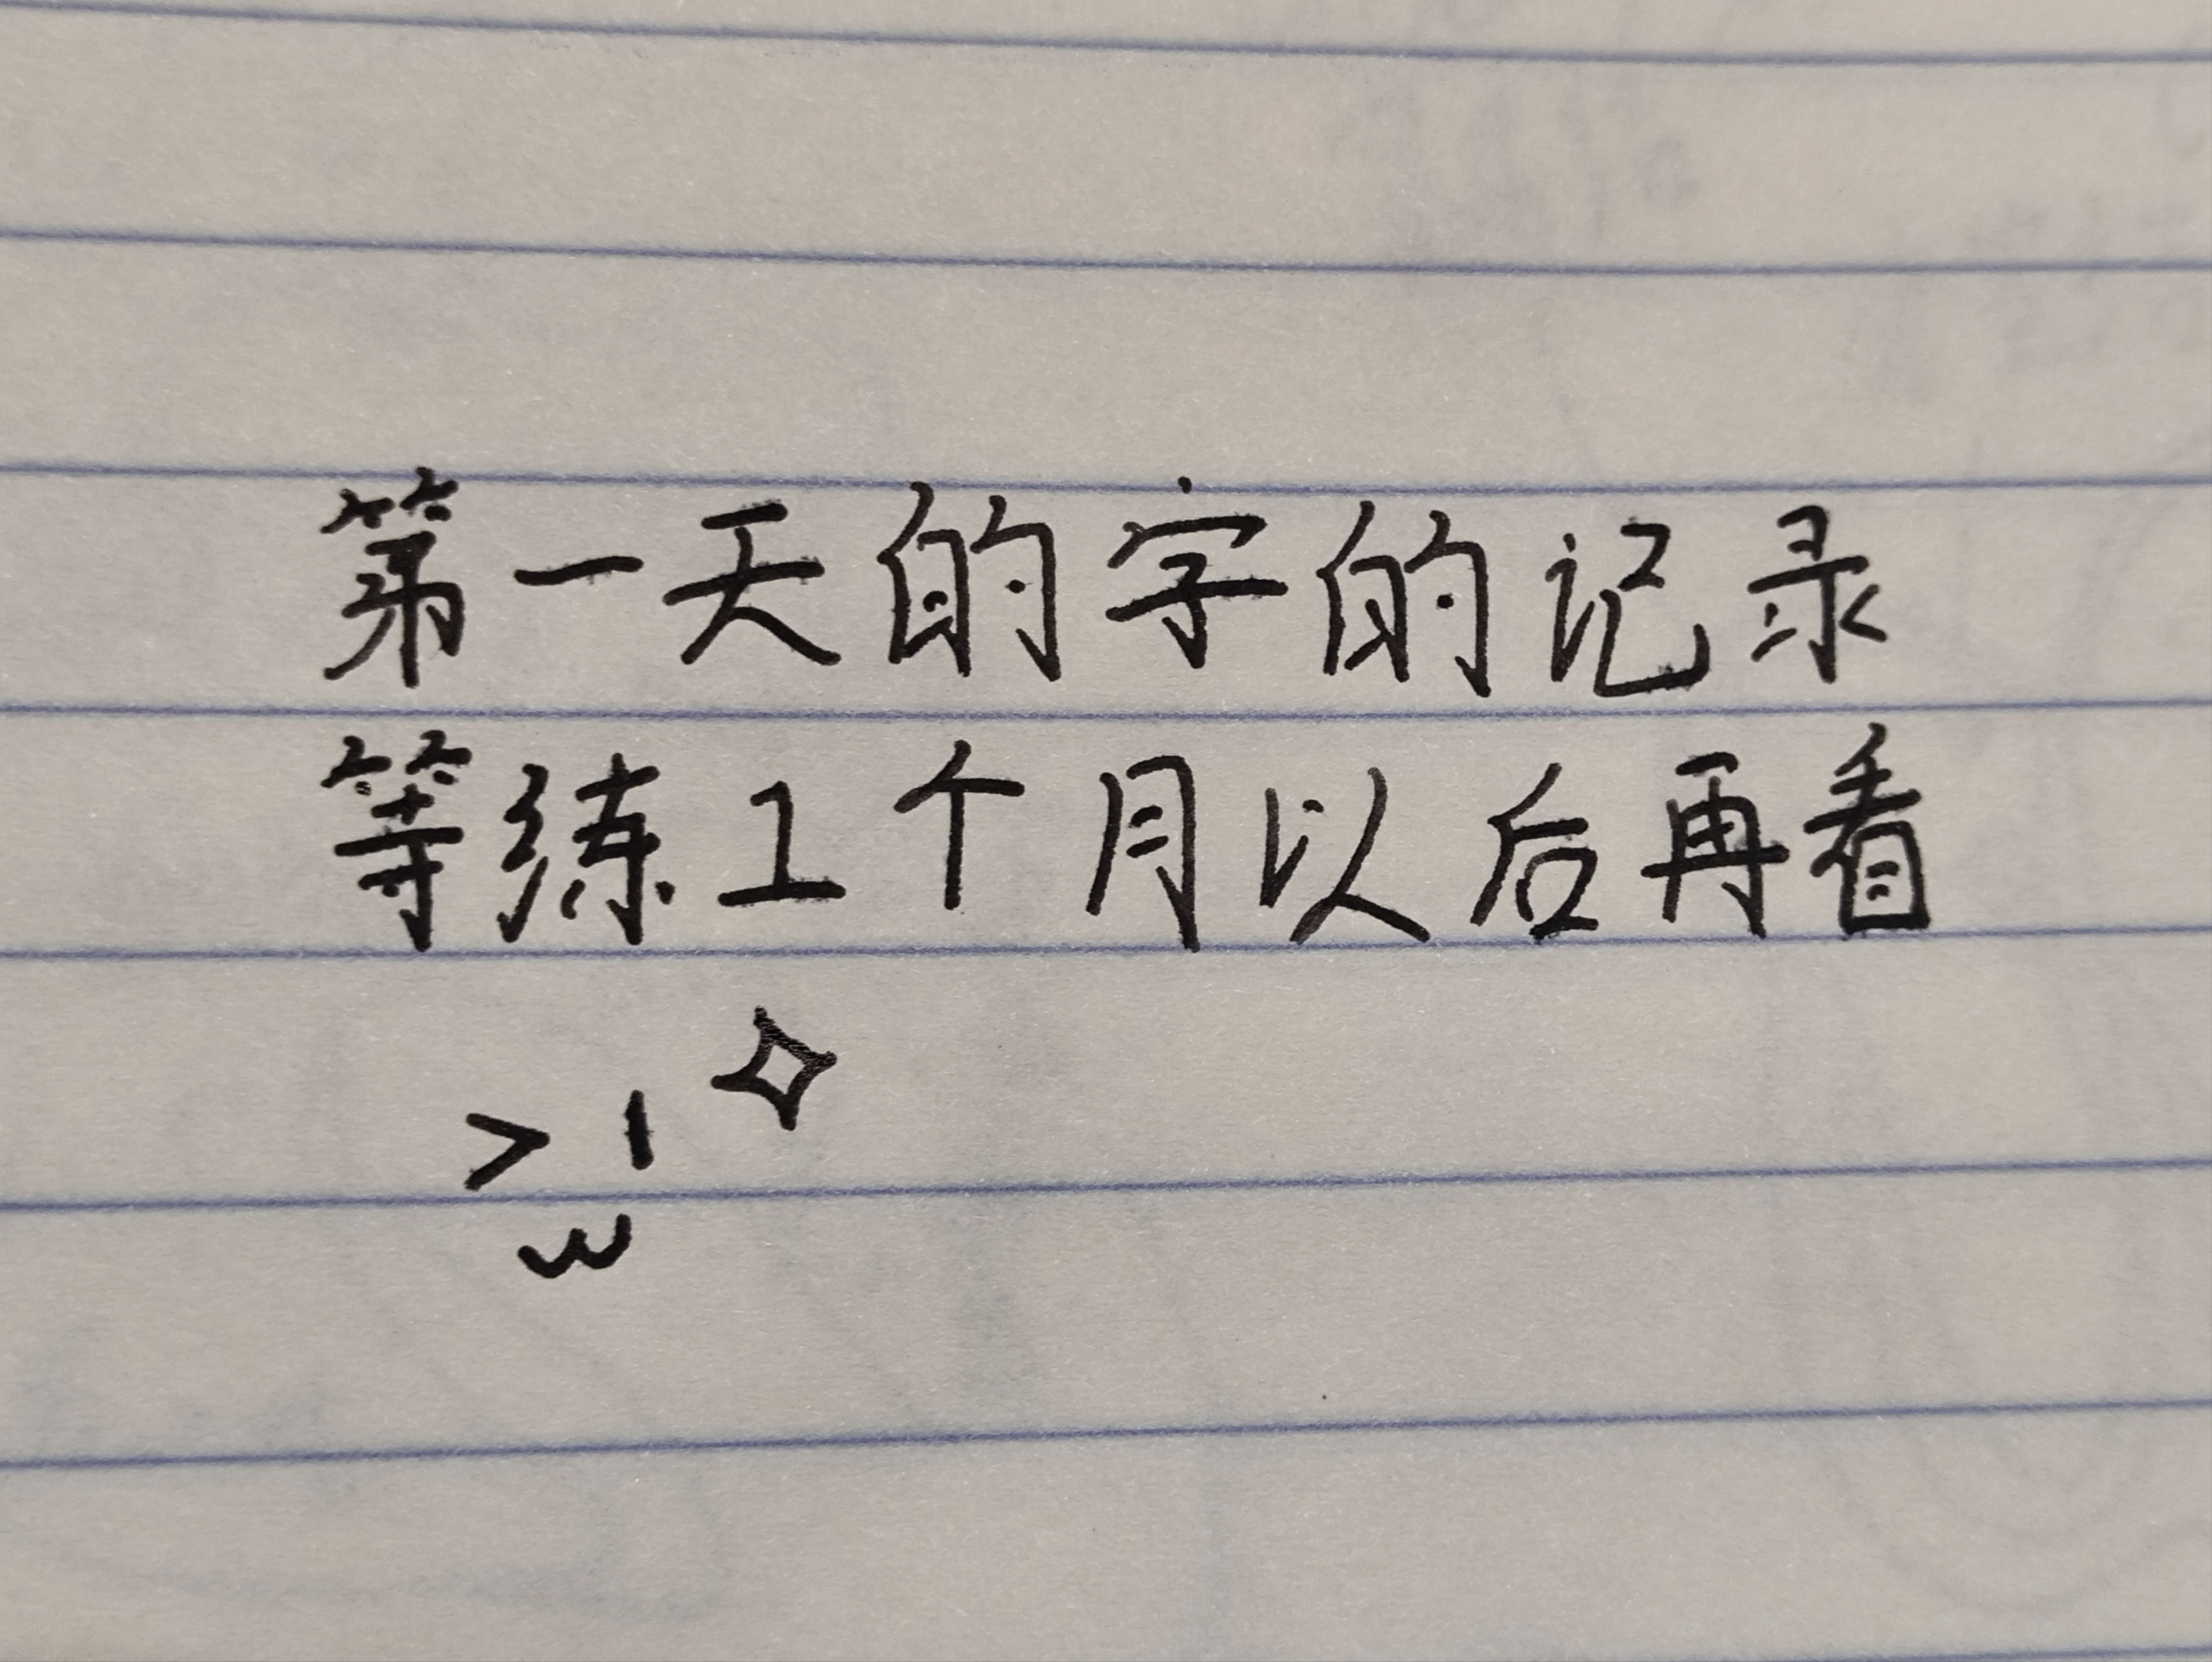 第一天的字的记录
等练1个月以后再看